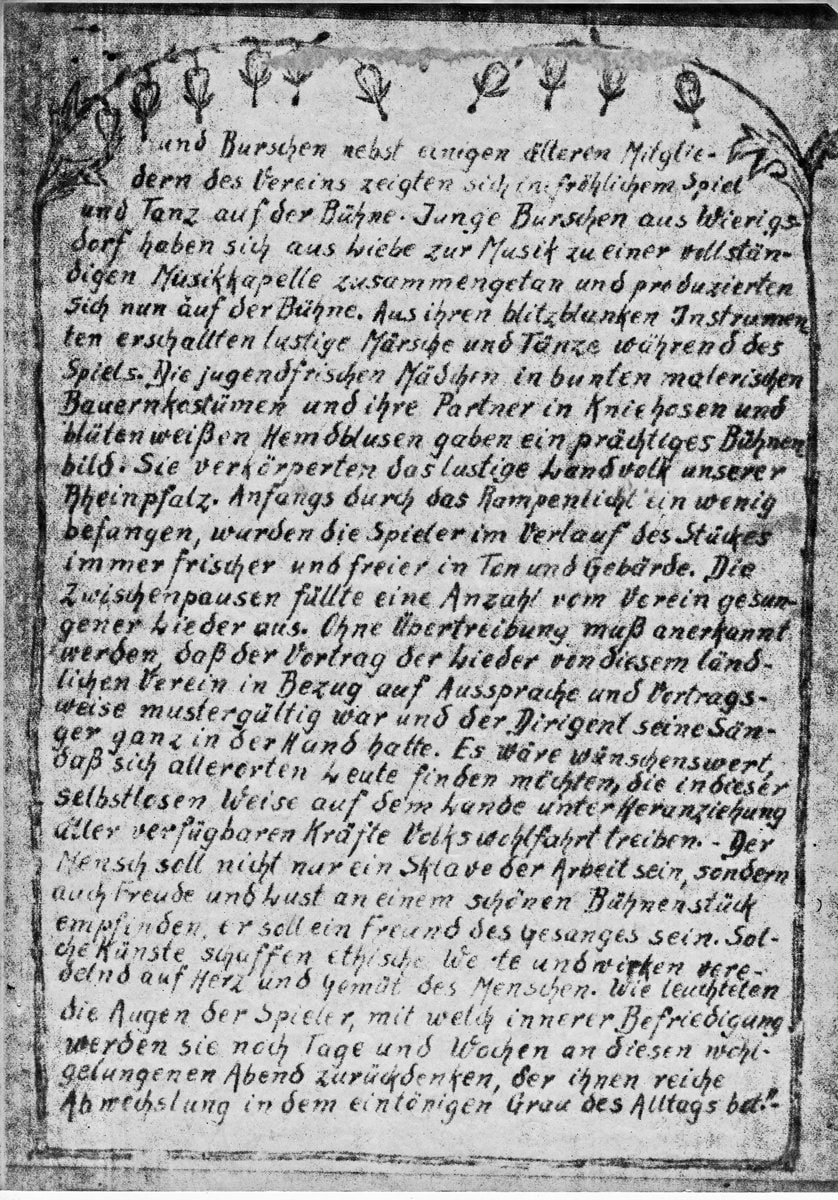 und Burschen nebst einigen älteren Mitglie-
dern des Vereins zeigten sich in fröhlichem Spiel
und Tanz auf der Bühne. Junge Burschen aus Wierigs-
dorf haben sich aus Liebe zur Musik zu einer vollstän-
digen Musikkapelle zusammengetan und produzierten
sich nun auf der Bühne. Aus ihren blitzblanken Instrumen-
ten erschallten lustige Märsche und Tänze während des
Spiels. Die jugendfrischen Mädchen in bunten malerischen
Bauernkostümen und ihre Partner in Kniehosen und
blütenweißen Hemdblusen gaben ein prächtiges Bühnen-
bild. Sie verkörperten das lustige Landvolk unserer
Rheinpfalz. Anfangs durch das Rampenlicht ein wenig
befangen, wurden die Spieler im Verlauf des Stückes
immer frischer und freier in Ton und Gebärde. Die
Zwischenpausen füllte eine Anzahl vom Verein gesun-
gener Lieder aus. Ohne Übertreibung muß anerkannt
werden, daß der Vortrag der Lieder von diesem länd-
lichen Verein in Bezug auf Aussprache und Vortrags-
weise mustergültig war und der Dirigent seine Sän-
ger ganz in der Hand hatte. Es wäre wünschenswert,
daß sich allerorten Leute finden möchten, die in dieser
selbstlosen Weise auf dem Lande unter Heranziehung
aller verfügbaren Kräfte Volkswohlfahrt treiben. - Der
Mensch soll nicht nur ein Sklave der Arbeit sein, sondern
auch Freude und Lust an einem schönen Bühnenstück
empfinden, er soll ein Freund des Gesanges sein. Sol-
che Künste schaffen ethische Werte und wirken vere-
delnd auf Herz und Gemüt des Menschen. Wie leuchteten
die Augen der Spieler, mit welch innerer Befriedigung
werden sie noch Tage und Wochen an diesen wohl-
gelungenen Abend zurückdenken, der ihnen reiche
Abwechslung in dem eintönigen Grau des Alltags bot."-